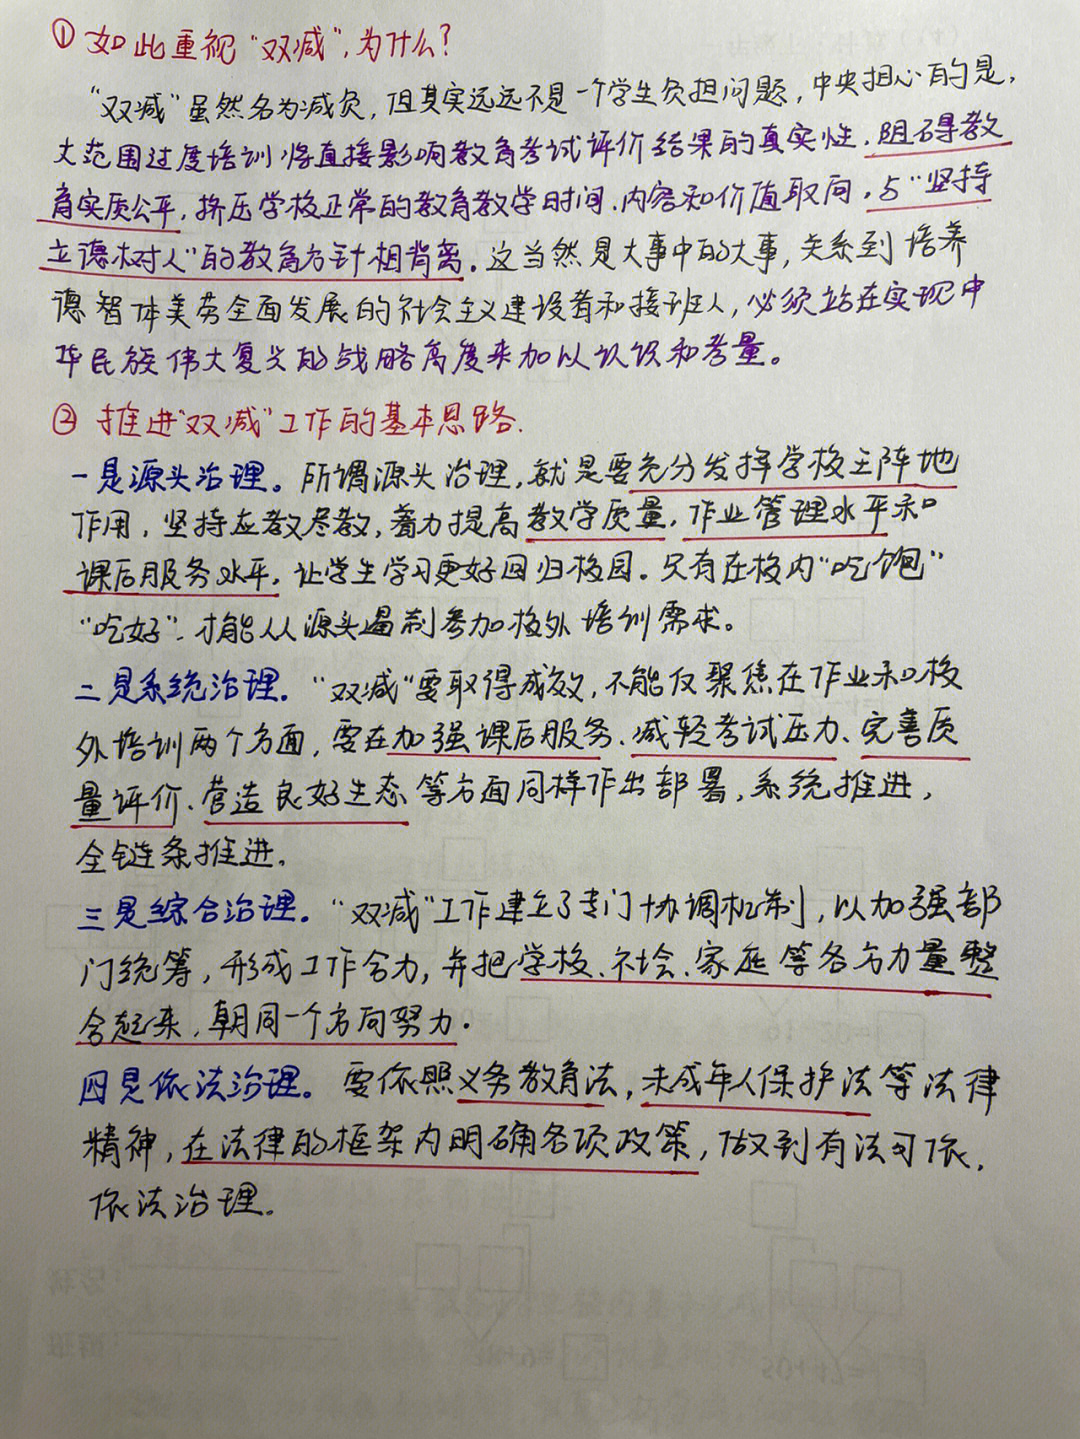 ① 如此重视“双减”,为什么?
“双减”虽然名为减负,但其实远远不是一个学生负担问题,中央担心的是,
大范围过度培训将直接影响教育考试评价结果的真实性,阻碍教
育实质公平,挤压学校正常的教育教学时间、内容和价值取向,与“坚持
立德树人”的教育方针相背离。这当然是大事中的大事,关系到培养
德智体美劳全面发展的社会主义建设者和接班人,必须站在实现中
华民族伟大复兴的战略高度来加以认识和考量。
② 推进“双减”工作的基本思路.
一是源头治理。所谓源头治理,就是要充分发挥学校主阵地
作用,坚持应教尽教,着力提高教学质量,作业管理水平和
课后服务水平,让学生学习更好回归校园。只有在校内“吃饱”
“吃好”,才能从源头遏制参加校外培训需求。
二是系统治理。“双减”要取得成效,不能仅聚焦在作业和校
外培训两个方面,要在加强课后服务、减轻考试压力、完善质
量评价、营造良好生态等方面同样作出部署,系统推进,
全链条推进。
三是综合治理。“双减”工作建立了专门协调机制,以加强部
门统筹,形成工作合力,并把学校、社会、家庭等各方力量整
合起来,朝同一个方向努力.
四是依法治理。要依照义务教育法,未成年人保护法等法律
精神,在法律的框架内明确各项政策,做到有法可依,
依法治理。